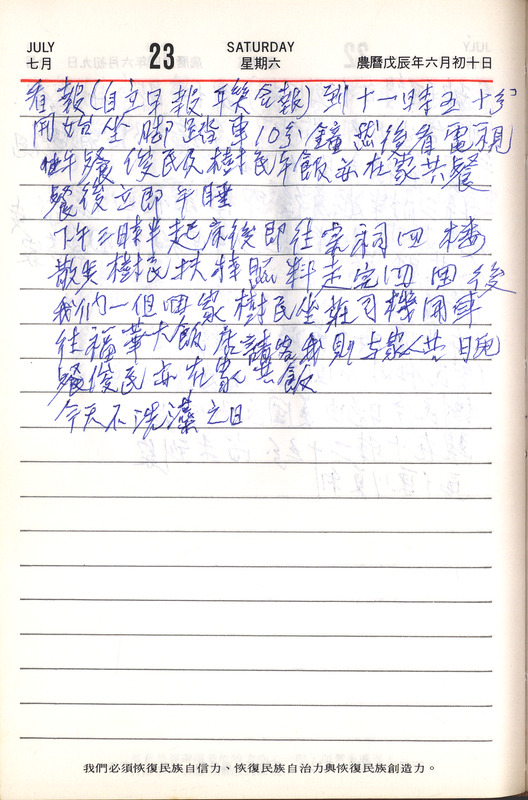 JULY 23 SATURDAY
七月 星期六 農曆戊辰年六月初十日
看報(自立早報 聯合報)到十一時五十分
開始坐腳踏車10分鐘然後看電視
午餐俊民及樹民午飯亦在家共餐
餐後立即午睡
下午三時半起床後即往宗祠四樓
散步樹民扶持照料走完四回後
我們一但回家樹民坐 司機開車
往福華大飯店請客我則与家人共晚
餐俊民亦在家共飯
今天不洗澡之日
我們必須恢復民族自信力、恢復民族自治力與恢復民族創造力。